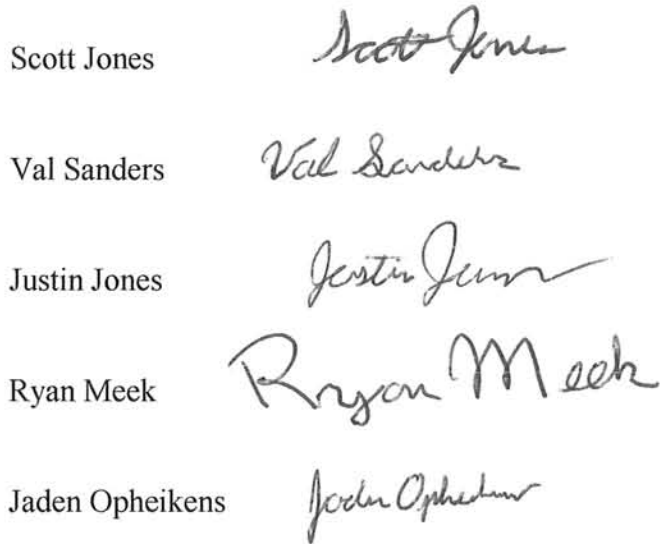 Scott Jones Scott Jones
Val Sanders Val Sanders
Justin Jones Justin Jones
Ryan Meek Ryan Meek
Jaden Opheikens Jaden Opheikens